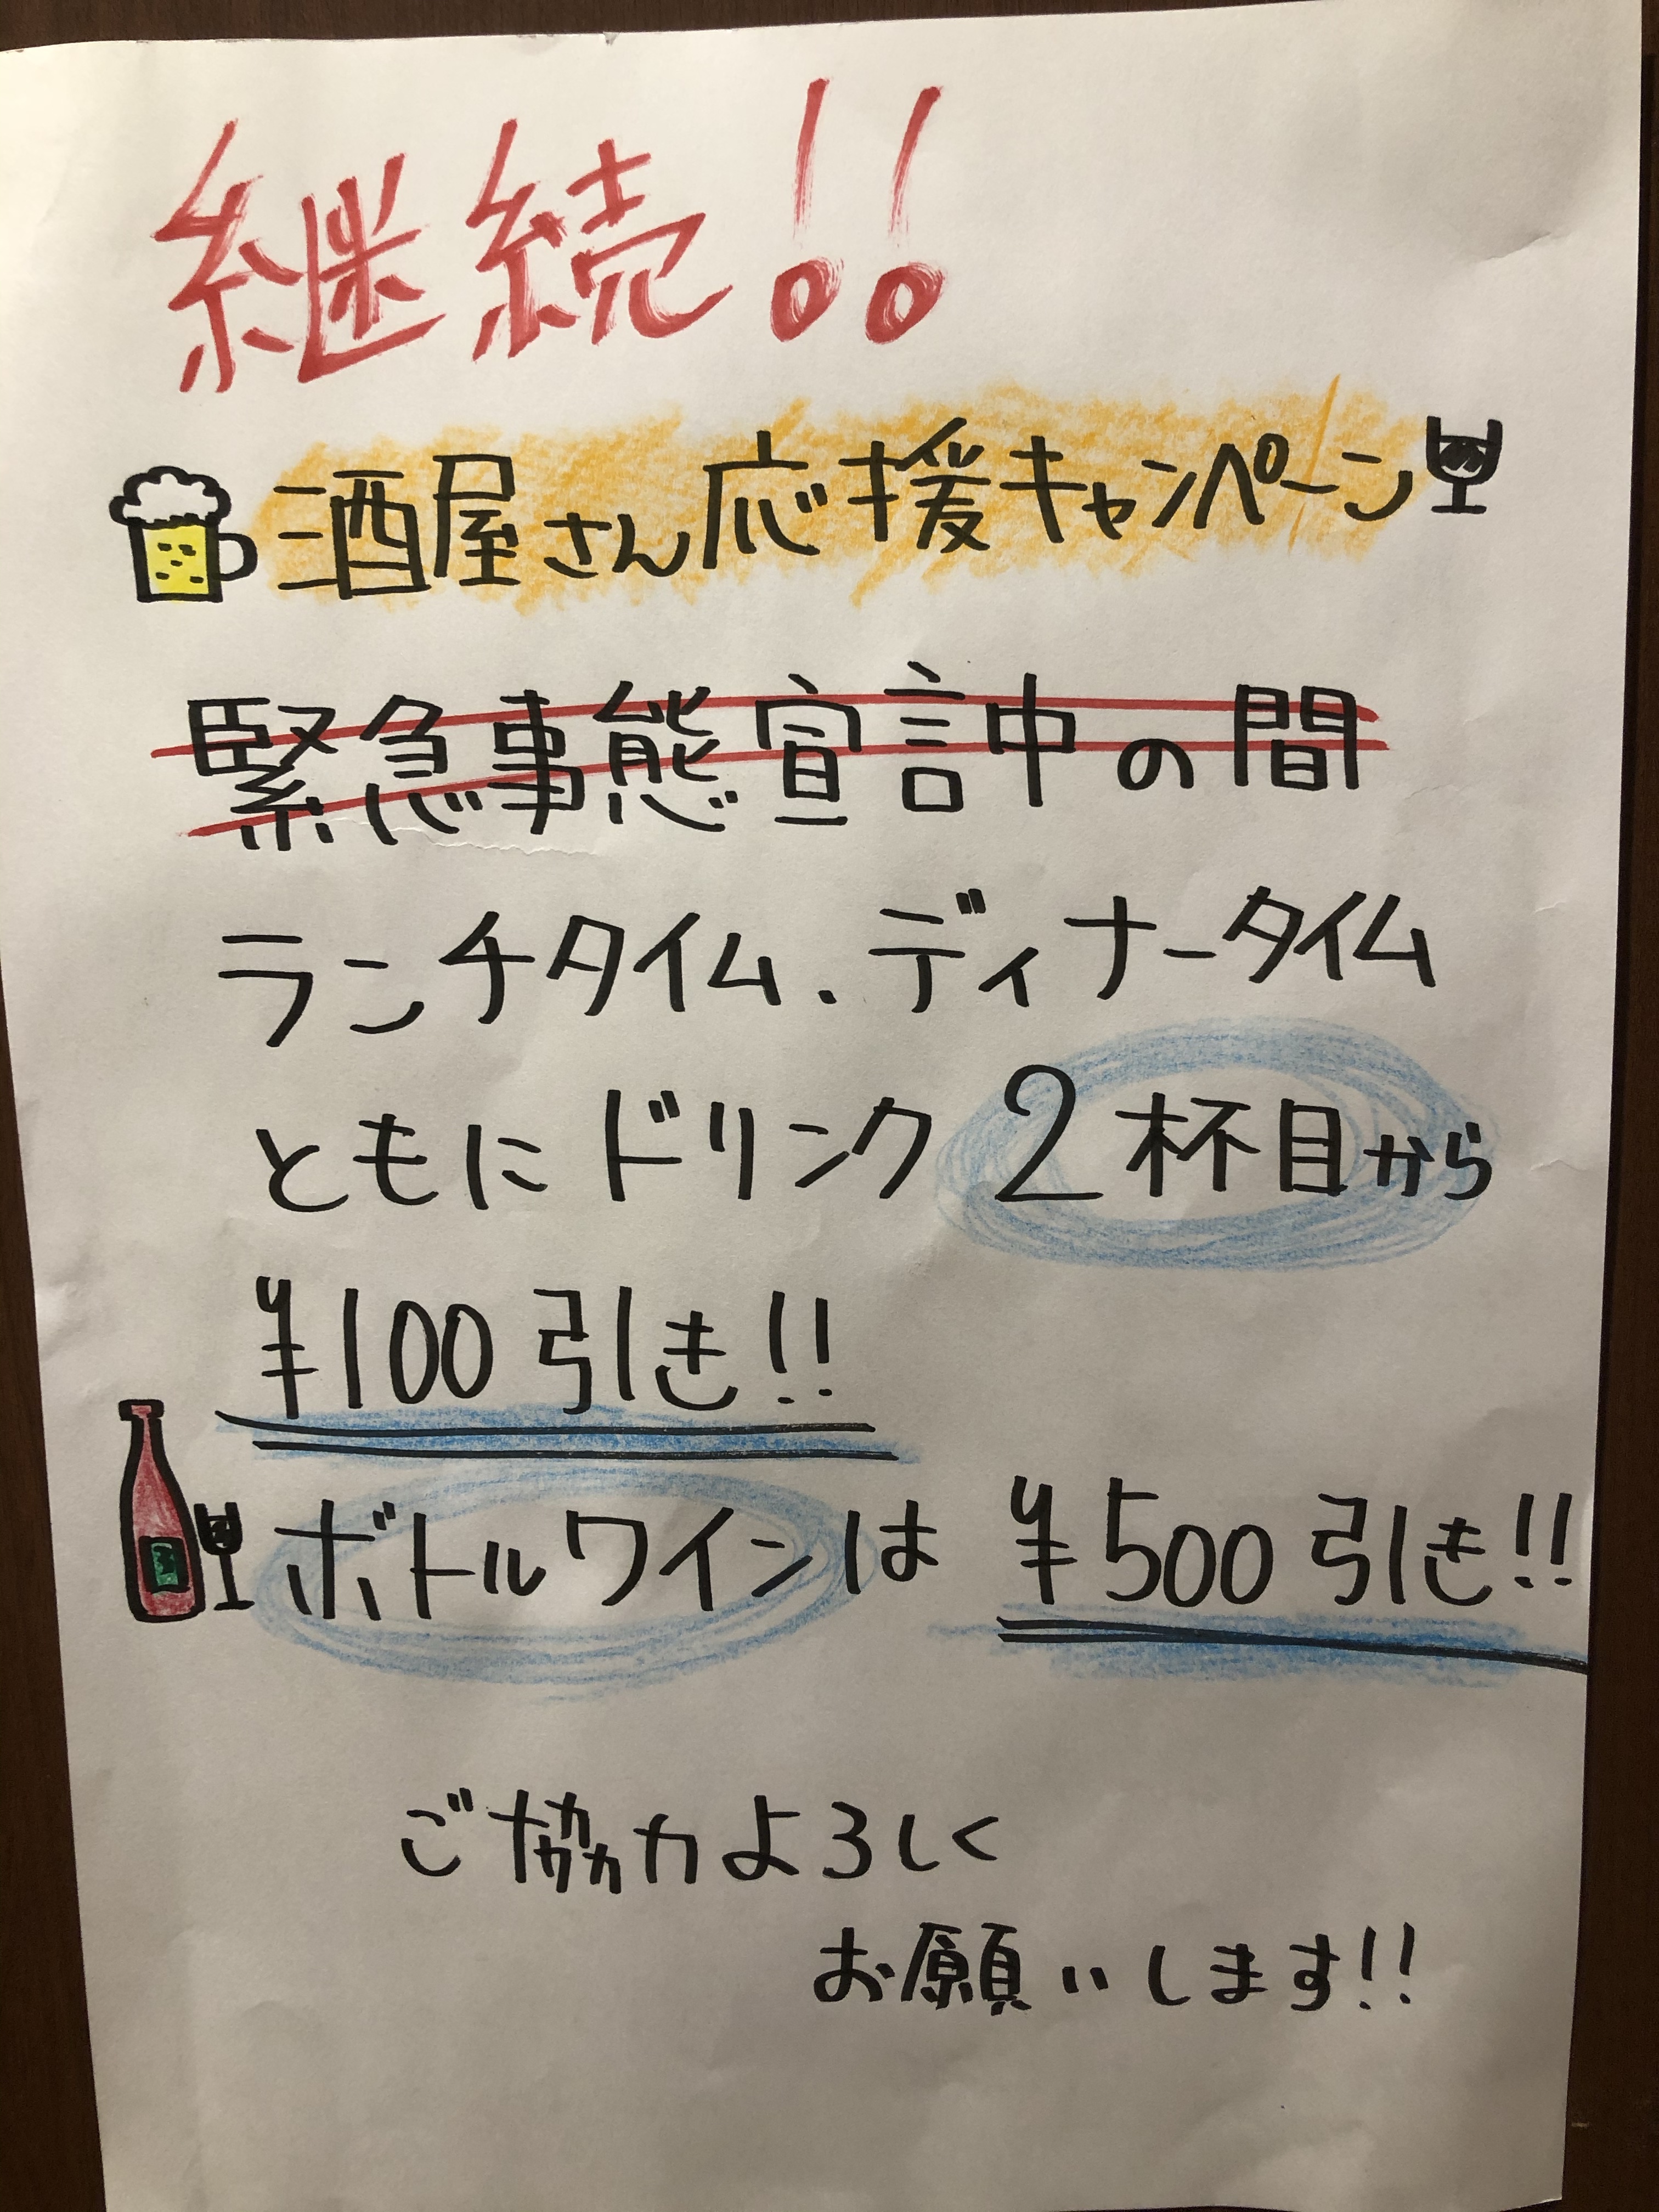 継続!!
酒屋さん応援キャンペーン
緊急事態宣言中の間
ランチタイム、ディナータイム
ともにドリンク2杯目から
¥100引き!!
ボトルワインは ¥500引き!!
ご協力よろしく
お願いします!!